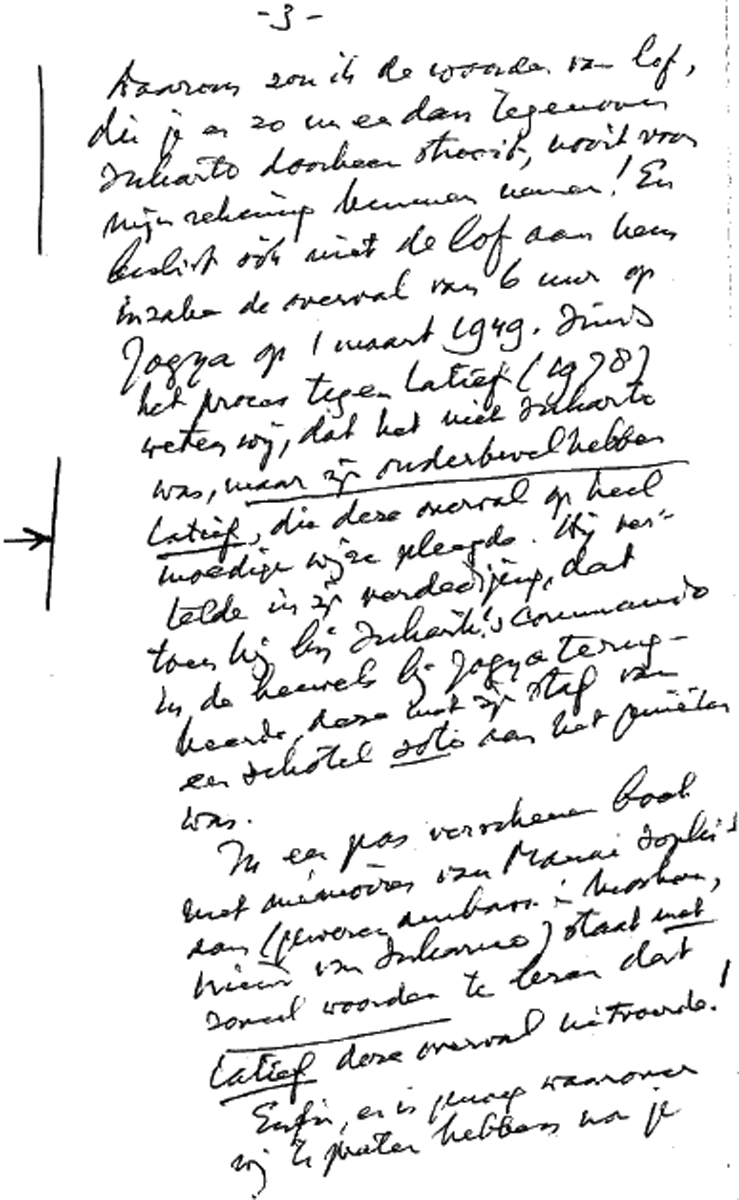 -3-
daarom zou ik de woorden van lof,
die je er zo nu en dan tegenover
Suharto doorheen strooit, nooit voor
mijn rekening kunnen nemen! En
beslist ook niet de lof aan hem
inzake de overval van 6 uur op
Jogya op 1 maart 1949. Sinds
het proces tegen Latief (1978)
weten wij, dat het niet Suharto
was, maar zijn onderbevelhebber
Latief, die deze overval op heel
moedige wijze pleegde. Hij ver-
telde in zijn verdediging, dat
toen hij bij Suharto's commando
in de heuvels bij Jogya terug-
keerde, deze met zijn staf van
een schotel soto aan het genieten
was.
In een pas verschenen boek
met mémoires van Manai Sophi-
aan (geweren ambass. in Moskou,
van Sukarno) staat met
zoveel woorden te lezen dat
Latief deze overval uitvoerde!
Enfin, er is genoeg waarover
wij te praten hebben voor je